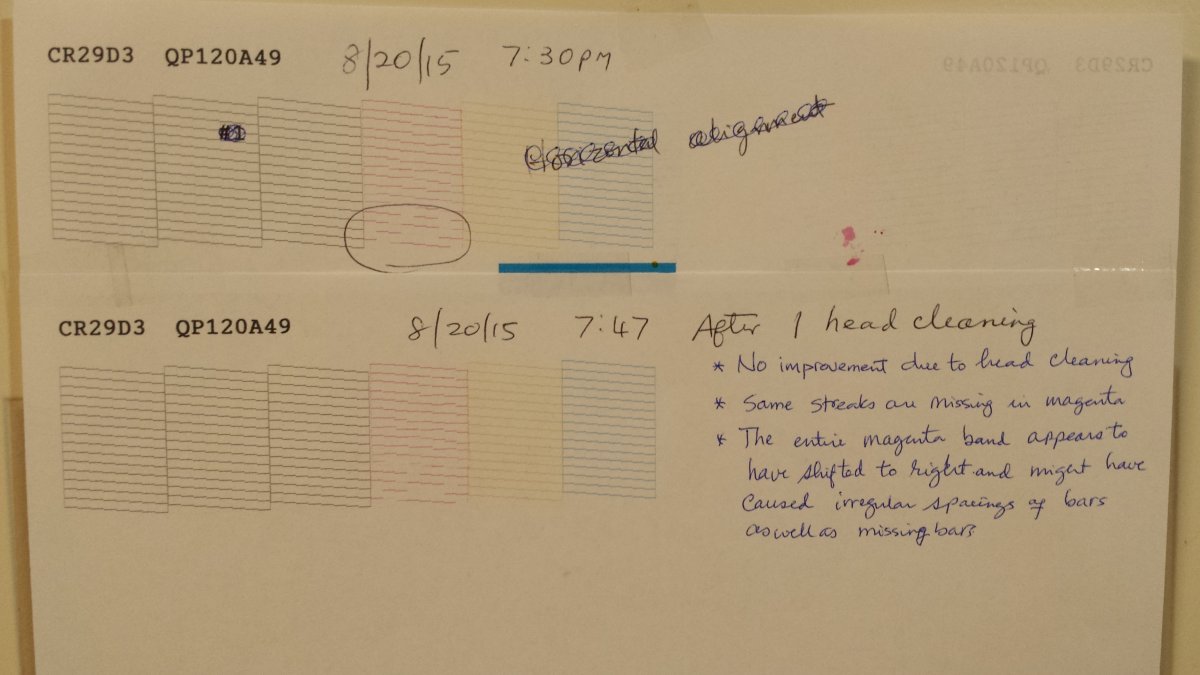 CR29D3 QP120A49 8/20/15 7:30PM
#1
Horizontal alignment
CR29D3 QP120A49
CR29D3 QP120A49 8/20/15 7:47 After 1 head cleaning
* No improvement due to head cleaning
* Same streaks are missing in magenta
* The entire magenta band appears to
have shifted to right and might have
caused irregular spacings of bars
as well as missing bars